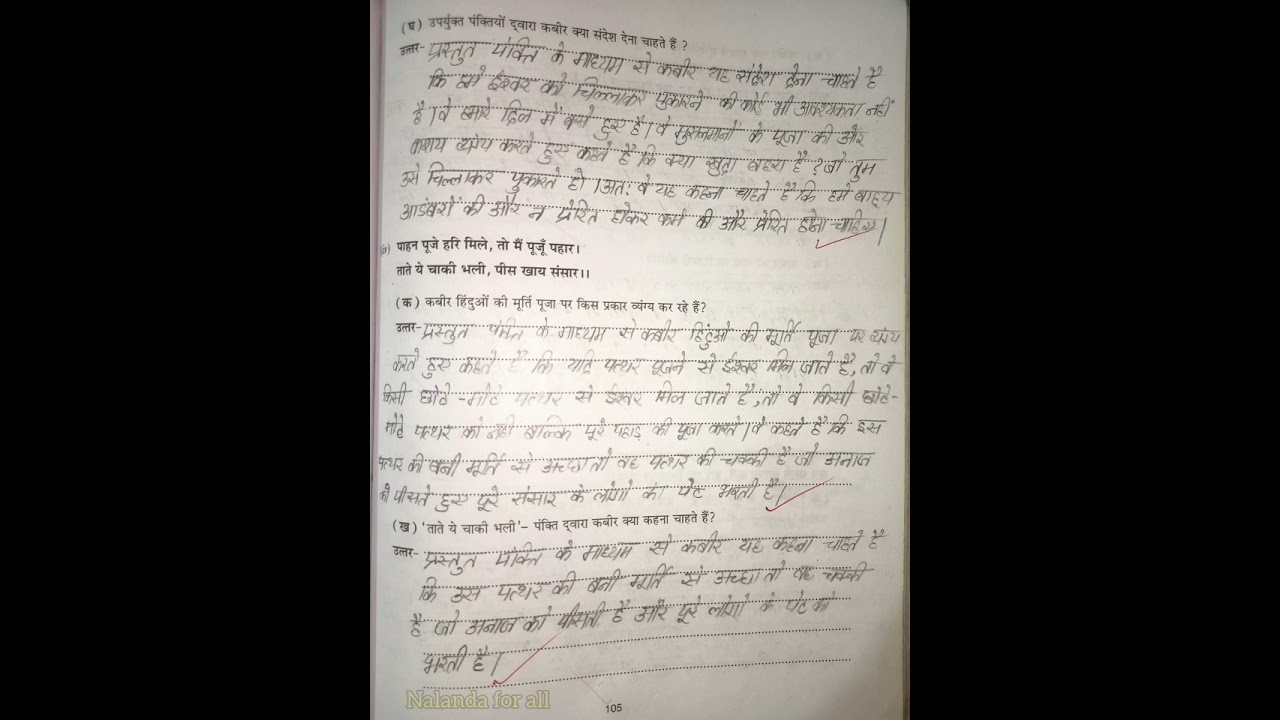 (घ) उपर्युक्त पंक्तियों द्वारा कबीर क्या संदेश देना चाहते हैं ?
उत्तर- प्रस्तुत पंक्ति के माध्यम से कबीर यह संदेश देना चाहते है
कि हमे ईश्वर को चिल्लाकर पुकारने की कोई भी आवश्यकता नहीं
है। वे हमारे दिल में बसे हुए है। वे मुसलमानों के पूजा की और
कराय व्यंग्य करते हुए कहते है कि क्या खुदा बहरा है ? जो तुम
उसे चिल्लाकर पुकारते हो । अत: वे यह कहना चाहते है कि हमे बाह्य
आडंबरों की और न प्रेरित होकर कर्म की और प्रेरित होना चाहिए।
पाहन पूजे हरि मिले, तो मैं पूजूँ पहार।
ताते ये चाकी भली, पीस खाय संसार।।
(क) कबीर हिंदुओं की मूर्ति पूजा पर किस प्रकार व्यंग्य कर रहे हैं?
उत्तर- प्रस्तुत पंक्ति के माध्यम से कबीर हिंदुओ की मूर्ति पूजा पर व्यंग्य
करते हुए कहते है कि यदि पत्थर पूजने से ईश्वर मिल जाते है, तो वे
किसी छोटे-मोटे पत्थर से ईश्वर मिल जाते है, तो वे किसी छोटे-
मोटे पत्थर को नही बल्कि पूरे पहाड़ की पूजा करते। वे कहते है कि इस
पत्थर की बनी मूर्ति से अच्छा तो वह पत्थर की चक्की है जो अनाज
को पीसते हुए पूरे संसार के लोगो का पेट भरती है।
(ख) 'ताते ये चाकी भली'- पंक्ति द्वारा कबीर क्या कहना चाहते हैं?
उत्तर- प्रस्तुत पंक्ति के माध्यम से कबीर यह कहना चाहते है
कि उस पत्थर की बनी मूर्ति से अच्छा तो वह चक्की
है जो अनाज को पीसती है और पूरे लोगो के पेट को
भरती है।
Nalanda for all
105